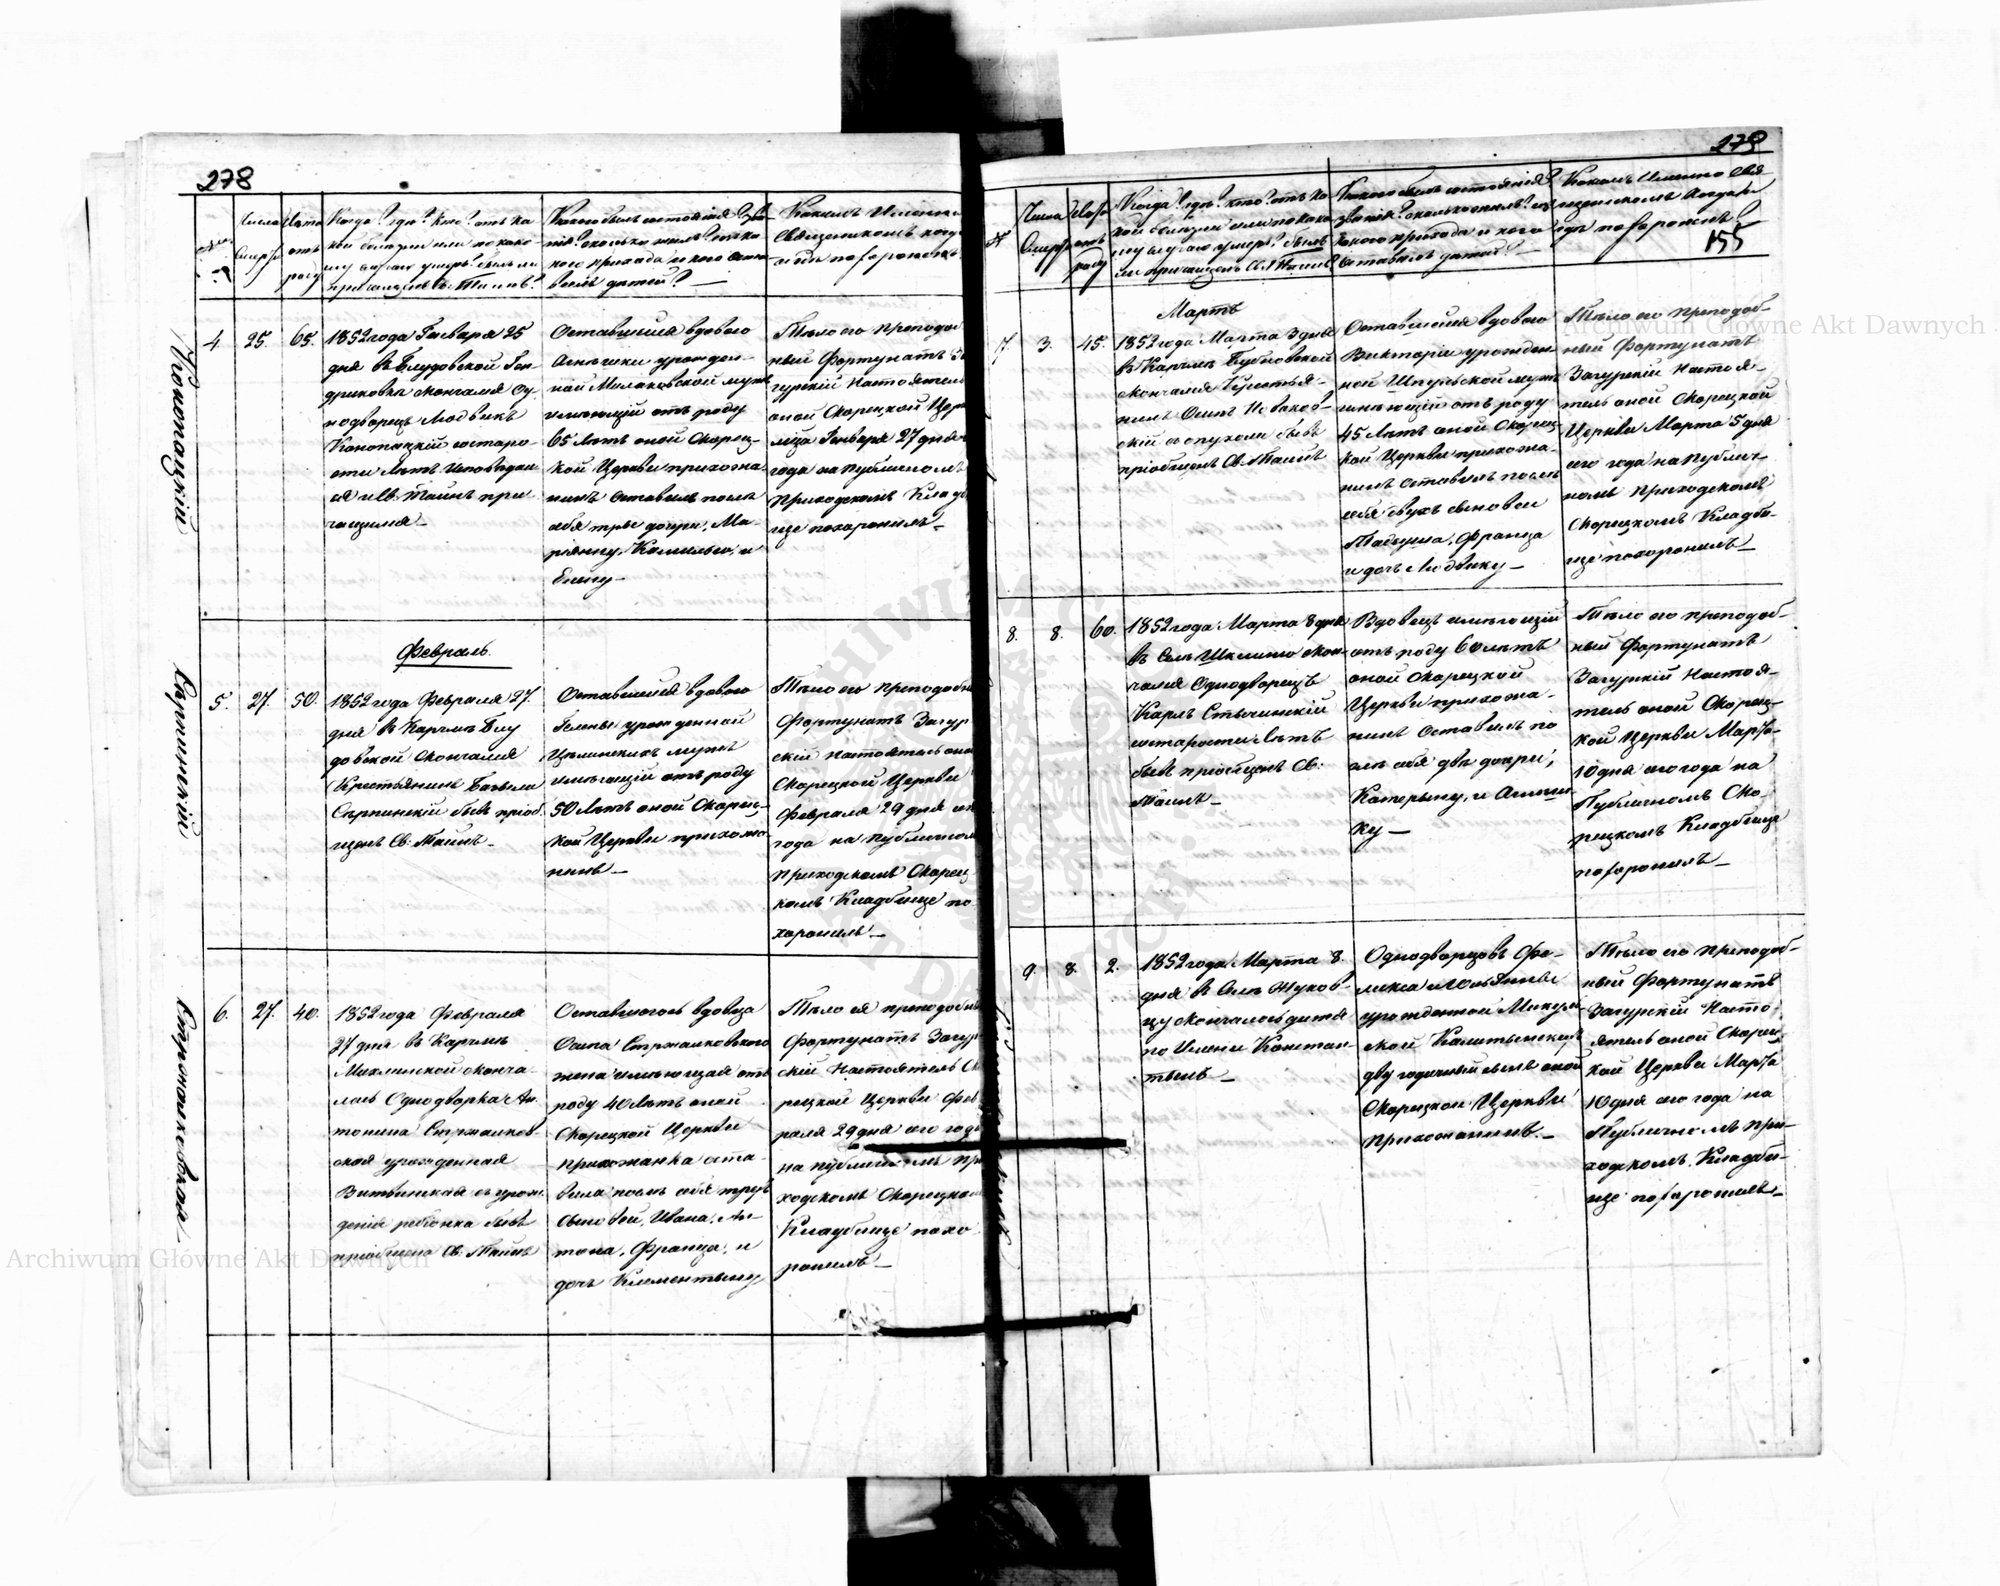 278
Когда? гдѣ? кто? отъ ка
кой болезни или по како
му случаю умеръ? былъ ли
Какого былъ состоянія? зва
нія? сколько жилъ? коего
кого прихода и кого оста
вилъ дѣтей? —
Какимъ Именно
Священникомъ когда
и гдѣ похороненъ
Кононацкій
4.
25.
65.
1852 года Генваря 25
дня въ Блудовской Ген-
дриковкѣ скончался Од-
нодворецъ Людвикъ
Конопацкій отъ старо-
сти лѣтъ Исповѣдан
ся и Св. Тайнъ при
чащился —
Оставшейся вдовою
Агнѣшки урожден-
ной Малаковской мужъ
имѣющій отъ роду
65 лѣтъ оной Скорец-
кой Церкви прихожа-
нинъ оставилъ послѣ
себя трѣе дочери, Ма-
ріянну, Камилью, и
Елену —
Тѣло его преподоб
ный Фортунатъ За
гурскій Настоятель
оной Скорецкой Церк
мѣца Генваря 27 дня
года на Публичномъ
Приходскомъ Кладб
ище похоронилъ —
Серпинскій
Февраль
5.
27.
50.
1852 года Февраля 27.
дня въ Карчмѣ Блу
довской Скончался
Крестьянинъ Павелъ
Серпинскій бывъ пріоб
щенъ Св: Тайнъ —
Оставшейся вдовою
Гелены урожденной
Цѣлинскихъ мужъ
имѣющій отъ роду
50 лѣтъ оной Скорец-
кой Церкви прихожа-
нинъ —
Тѣло его преподобн
Фортунатъ Загур
скій Настоятель оно
Скорецкой Церкви
Февраля 29 дня се
года на Публичном
Приходскомъ Скорец
комъ Кладбище по
хоронилъ —
Стржалковская
6.
27.
40.
1852 года Февраля
27 дня въ Карчмѣ
Михлинской сконча
лась Однодворка Ан
тонина Стржалков-
ская урожденная
Витвинская съ урож
денія ребёнка бывъ
пріобщена Св. Тайнъ
Оставшогось вдовца
Осипа Стржалковского
жена имѣющая отъ
роду 40 лѣтъ оной
Скорецкой Церкви
прихожанка оста-
вила послѣ себя трёхъ
сыновей, Ивана, Ан-
тона, Франца, и
дочь Клементыну
Тѣло ея преподобн
Фортунатъ Загур
скій Настоятель Ск
рецкой Церкви Фев
раля 29 дня сего года
на публичномъ Пр
ходскомъ Скорецком
Кладбище похо
ронилъ —
155
Когда? гдѣ? кто? отъ ка
кой болезни или по како
му случаю умеръ? былъ
ли причащенъ Св. Тайнъ?
Какого былъ состоянія?
званія? сколько жилъ? из
коего прихода и кого
оставилъ дѣтей? —
Какимъ Именно Свя
щенникомъ Когда и
гдѣ похороненъ? —
Мартъ
7.
3.
45.
1852 года Марта 3 дня
въ Карчмѣ Бубновской
скончался Крестья-
нинъ Осипъ Новаков-
скій съ опухоли бывъ
пріобщенъ Св. Тайнъ
Оставшейся вдовою
Викторіи урожден
ной Шпульской мужъ
имѣющій отъ роду
45 лѣтъ оной Скорец-
кой Церкви прихожа-
нинъ оставилъ послѣ
себя двухъ сыновей
Тадеуша, Франца
и дочь Людвику —
Тѣло его преподоб-
ный Фортунатъ
Загурскій Настоя-
тель оной Скорецкой
Церкви Марта 5 дня
сего года на Публич
номъ Приходскомъ
Скорецкомъ Кладби-
ще похоронилъ —
8.
8.
60.
1852 года Марта 8 дня
въ Селѣ Шклинѣ скон
чался Однодворецъ
Карлъ Стычинскій
отъ старости лѣтъ
бывъ пріобщенъ Св:
Тайнъ —
Вдовецъ имѣющій
отъ роду 60 лѣтъ
оной Скорецкой
Церкви прихожа-
нинъ оставилъ по
слѣ себя двѣ дочри,
Катерыну, и Агнѣш-
ку —
Тѣло его преподоб-
ный Фортунатъ
Загурскій Настоя-
тель оной Скорец-
кой Церкви Марта
10 дня сего года на
Публичномъ Ско-
рецкомъ Кладбище
похоронилъ —
9.
8.
2.
1852 года Марта 8.
дня въ Селѣ Жуков
цу скончалось дитя
по Имени Констан
тынъ —
Однодворцовъ Фе-
ликса и Юльянны
урожденной Микуль
ской Калитынскихъ
двугодичный сынъ оной
Скорецкой Церкви
прихожанинъ. —
Тѣло его преподоб-
ный Фортунатъ
Загурскій Насто-
ятель оной Скорец
кой Церкви Марта
10 дня сего года на
Публичномъ При-
ходскомъ Кладби-
ще похоронилъ —
Archiwum Główne Akt Dawnych
Archiwum Główne Akt Dawnych